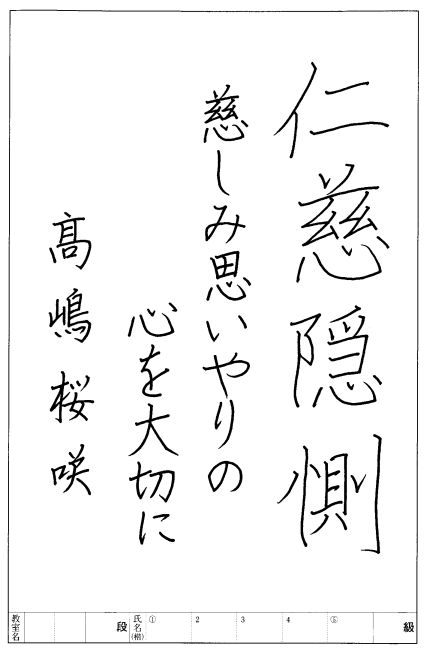 仁慈隠惻
慈しみ思いやりの
心を大切に
髙嶋桜咲
級
⑤
4
3
2
①
氏名(楷)
段
教室名